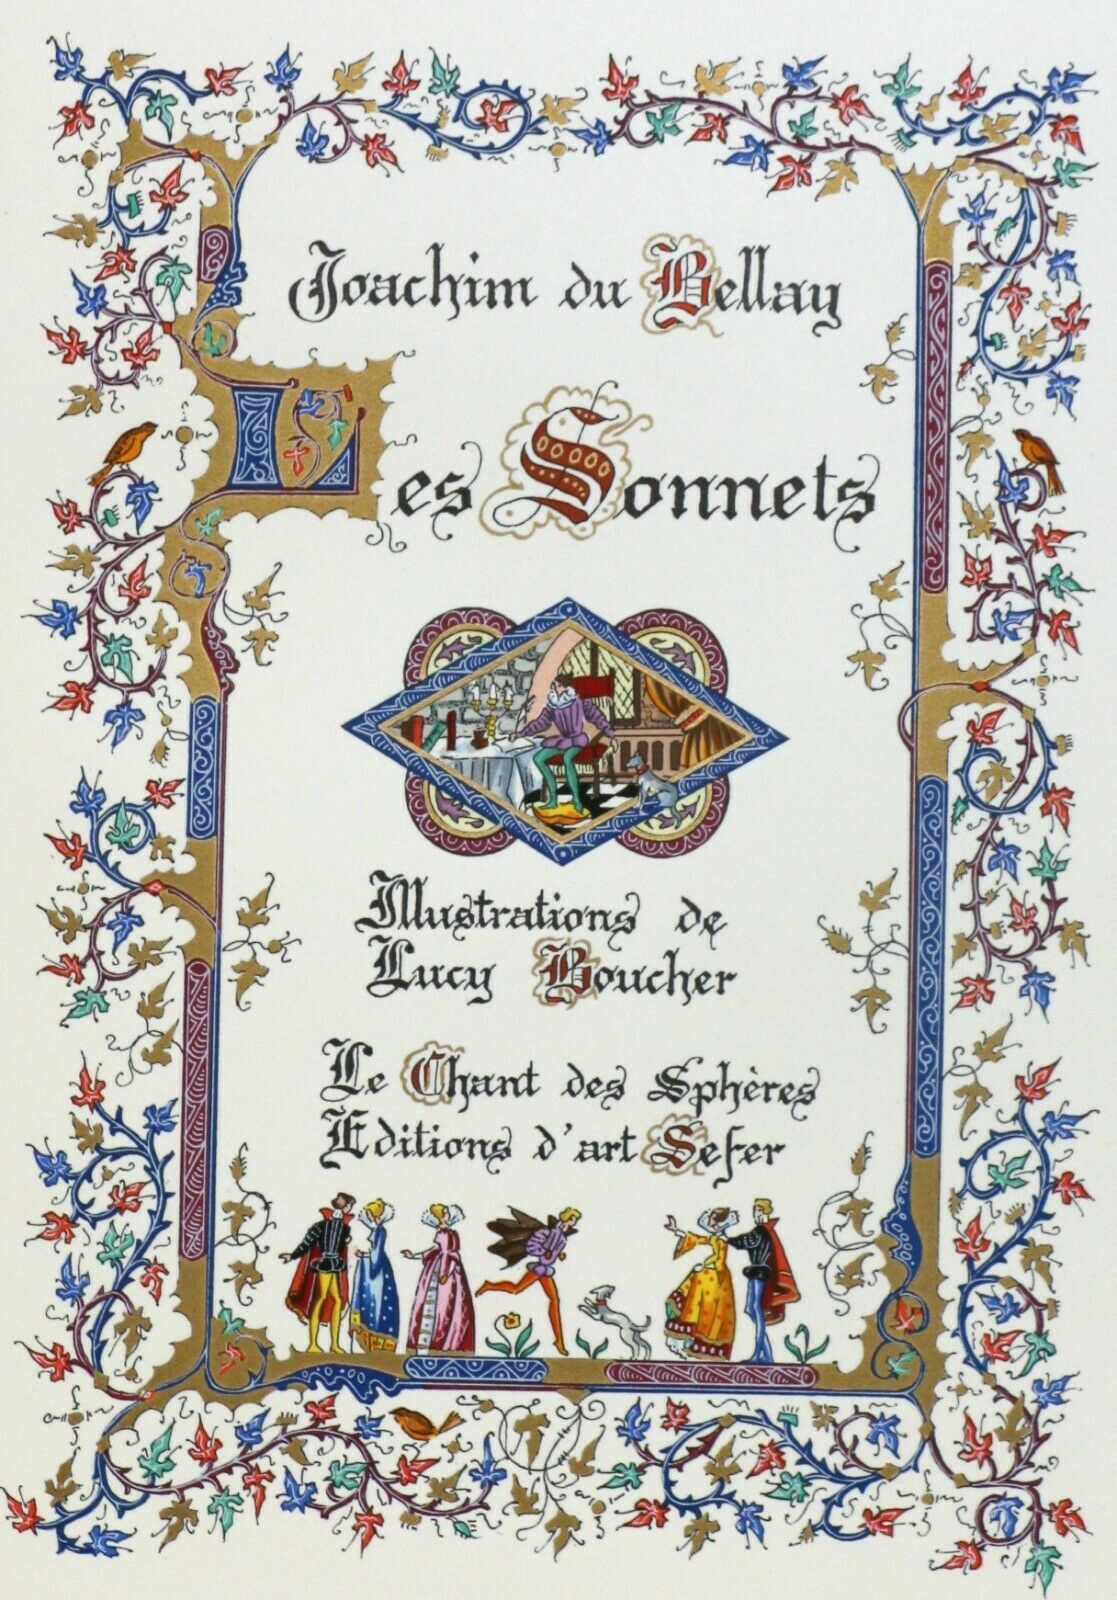 Joachim du Bellay
Les Sonnets
Illustrations de
Lucy Boucher
Le Chant des Sphères
Editions d'art Sefer